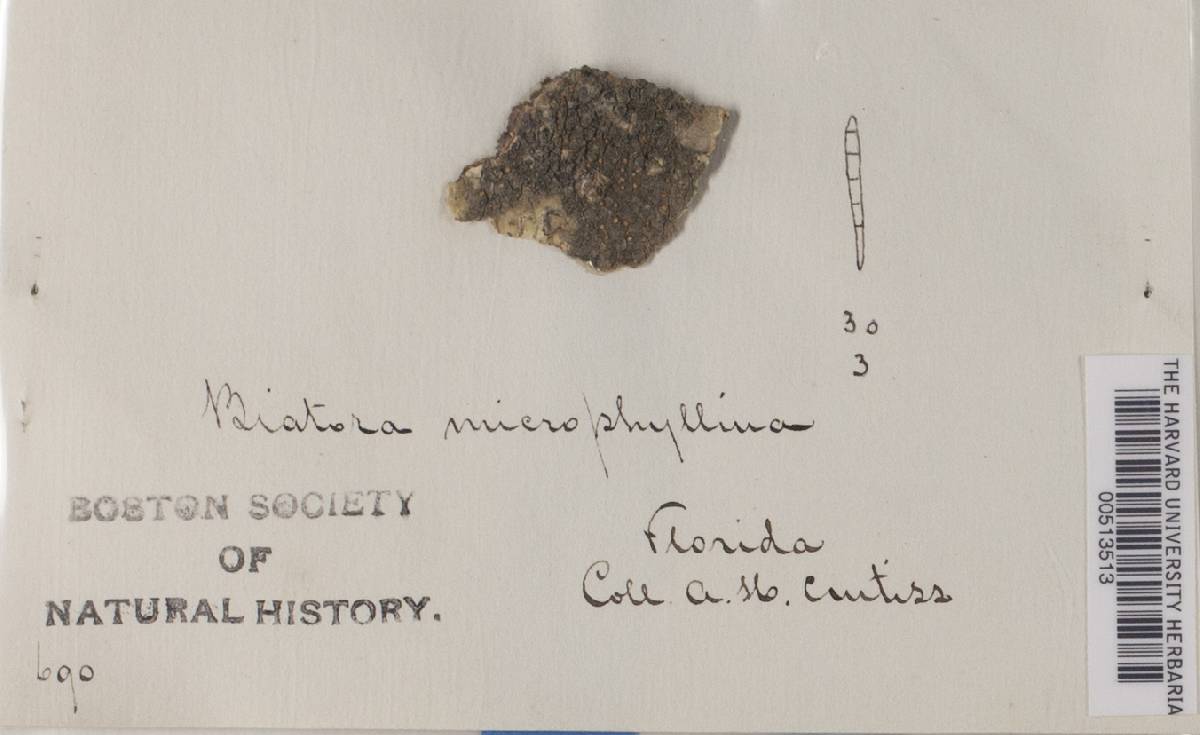 30
3
Biatora microphyllina
BOSTON SOCIETY
OF
NATURAL HISTORY.
Florida
Coll. A. H. Curtiss
690
THE HARVARD UNIVERSITY HERBARIA
00513513